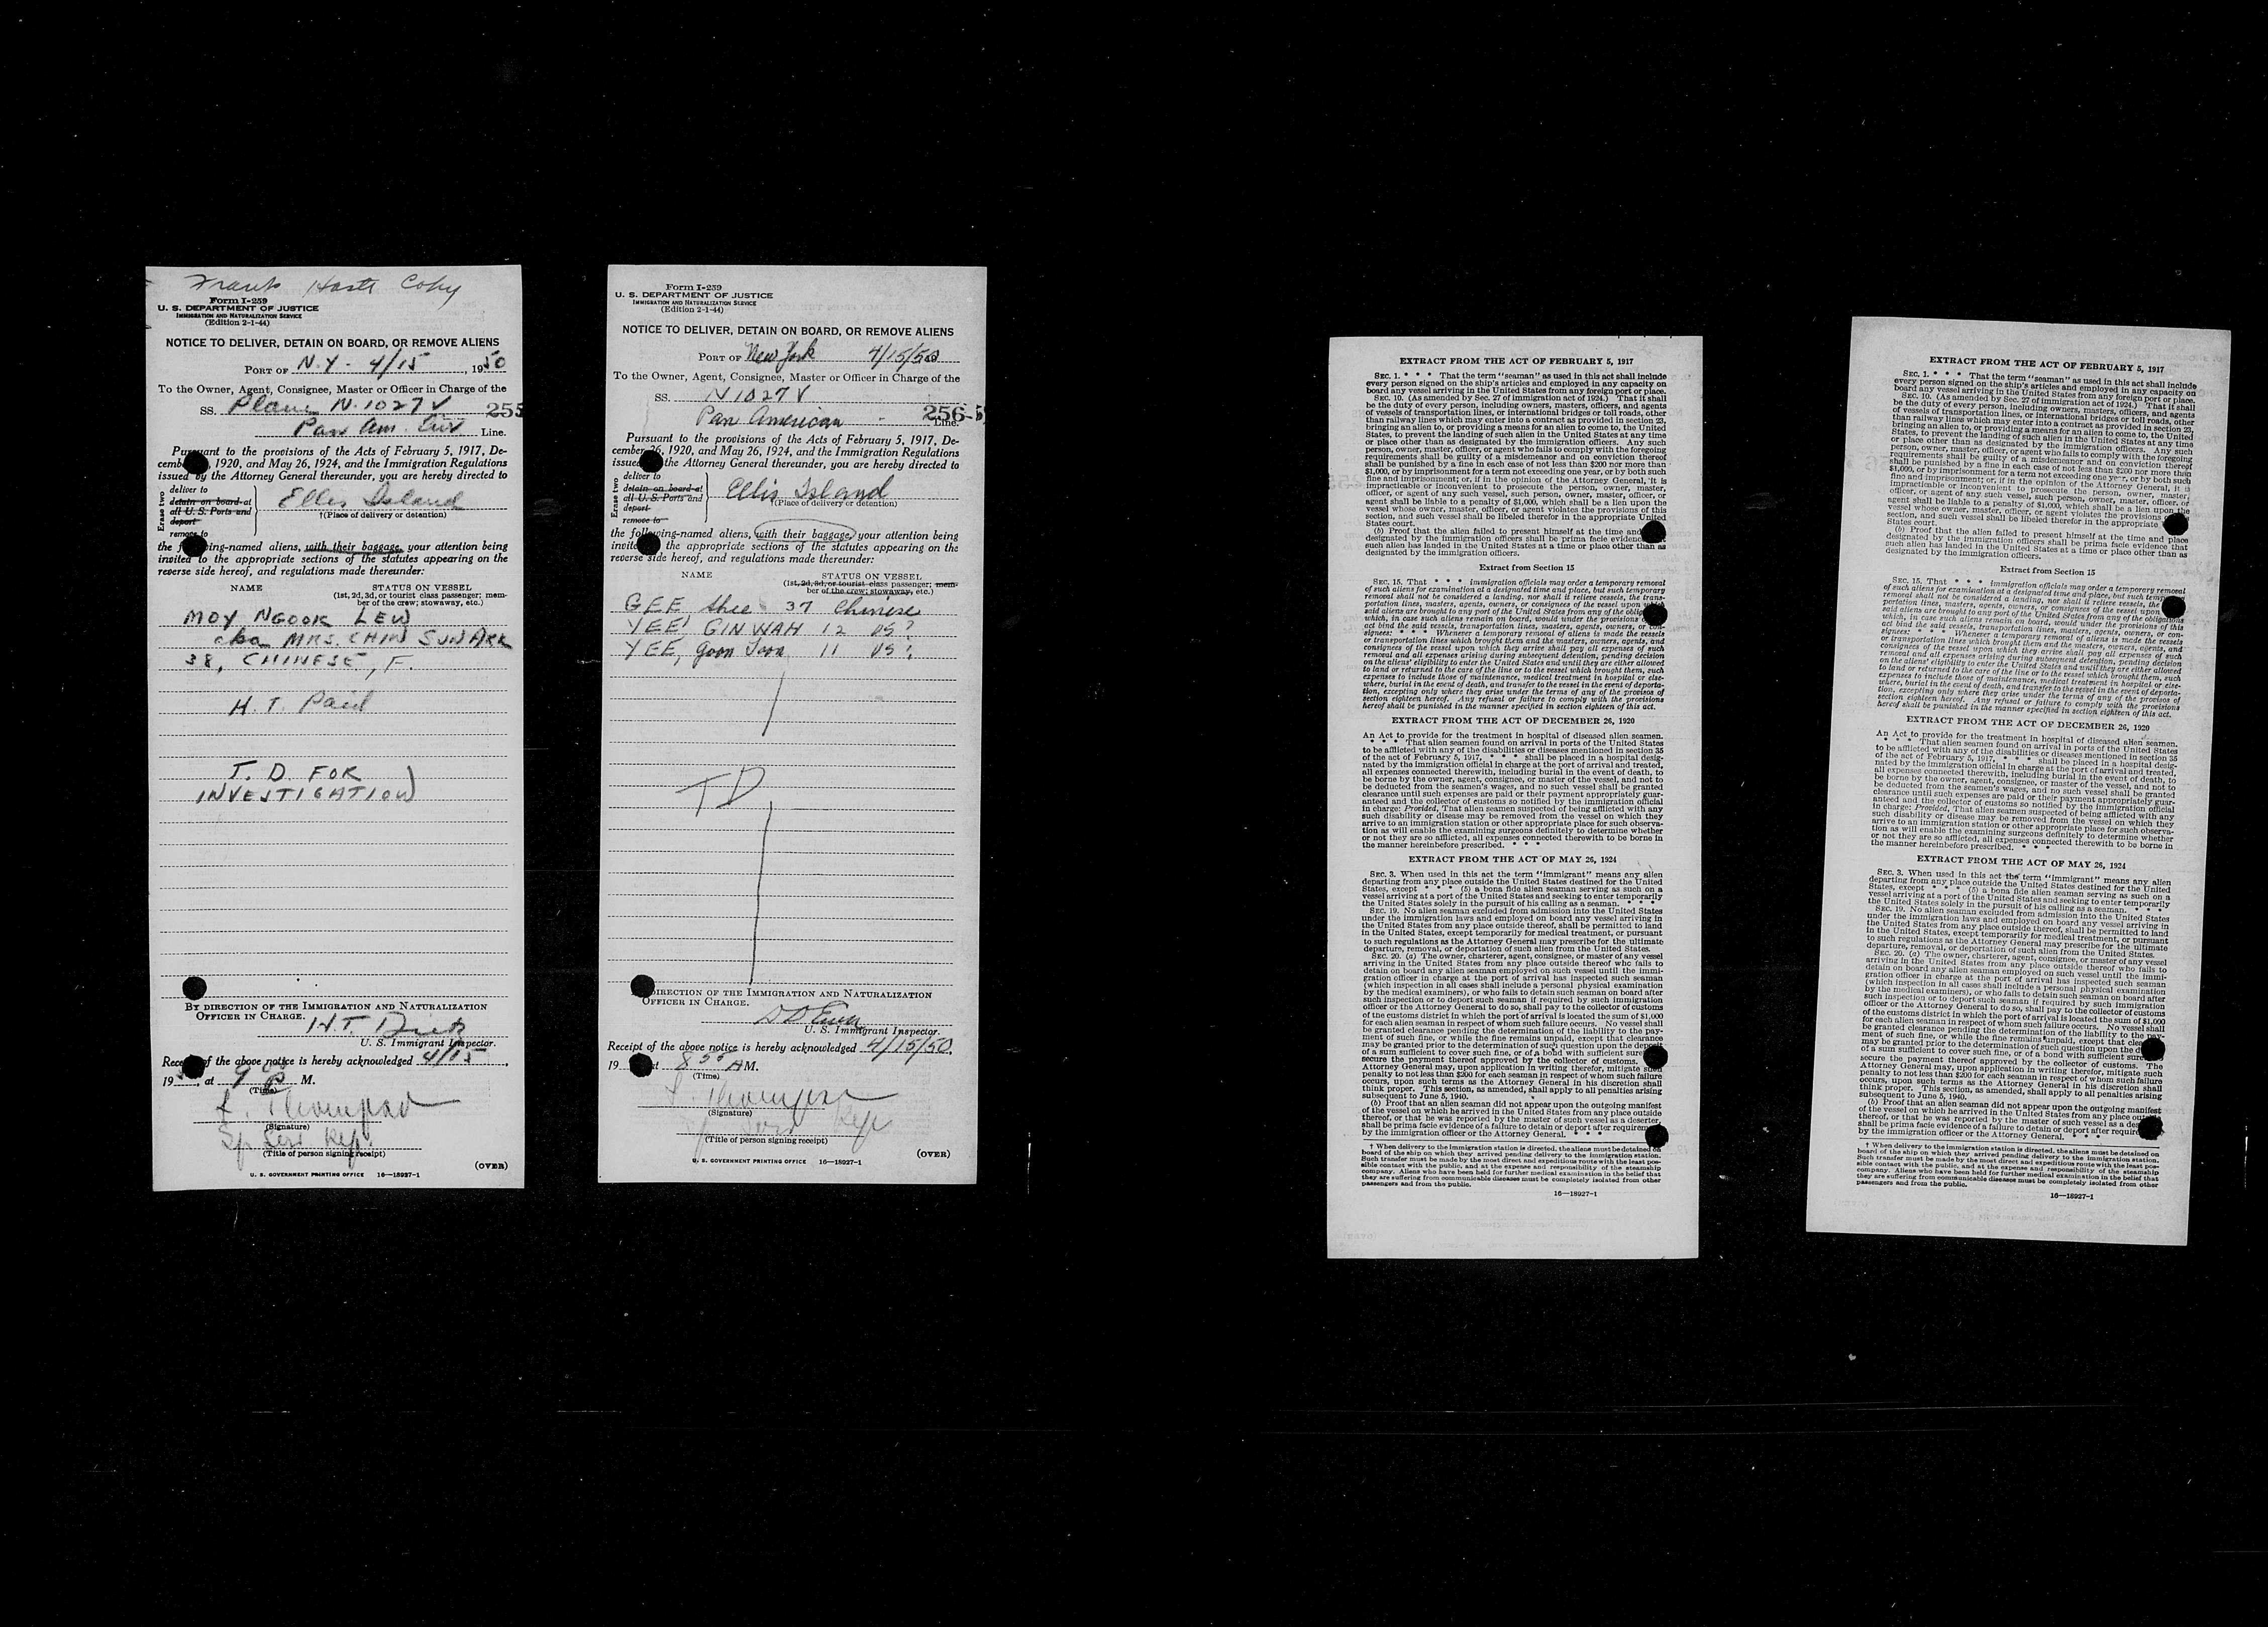 Frank Hoste Copy
Form I-259
U. S. DEPARTMENT OF JUSTICE
IMMIGRATION AND NATURALIZATION SERVICE
(Edition 2-1-44)
NOTICE TO DELIVER, DETAIN ON BOARD, OR REMOVE ALIENS
PORT OF N.Y. - 4/15, 1950
To the Owner, Agent, Consignee, Master or Officer in Charge of the
SS. Plane N. 1027 V 255
Pan Am. Air Line.
Pursuant to the provisions of the Acts of February 5, 1917, De-
cember 26, 1920, and May 26, 1924, and the Immigration Regulations
issued by the Attorney General thereunder, you are hereby directed to
Erase two
deliver to
detain on board at
all U. S. Ports and
deport
remove to
Ellis Island
†(Place of delivery or detention)
the following-named aliens, with their baggage, your attention being
invited to the appropriate sections of the statutes appearing on the
reverse side hereof, and regulations made thereunder:
NAME STATUS ON VESSEL
(1st, 2d, 3d, or tourist class passenger; mem-
ber of the crew; stowaway, etc.)
MOY NGOOK LEW
aka MRS. CHIN SUN ARK
38, CHINESE, F.
H. T. Paid
T. D FOR
INVESTIGATION)
BY DIRECTION OF THE IMMIGRATION AND NATURALIZATION
OFFICER IN CHARGE.
H.T.
U. S. Immigrant Inspector.
Receipt of the above notice is hereby acknowledged 4/15,
19 , at 9 00 P M.
(Time)
Thompson
(Signature)
Sp Serv Rep.
(Title of person signing receipt)
(OVER)
U. S. GOVERNMENT PRINTING OFFICE 16—18927-1
Form I-259
U. S. DEPARTMENT OF JUSTICE
IMMIGRATION AND NATURALIZATION SERVICE
(Edition 2-1-44)
NOTICE TO DELIVER, DETAIN ON BOARD, OR REMOVE ALIENS
PORT OF New York 4/15/50
To the Owner, Agent, Consignee, Master or Officer in Charge of the
SS. N 1027 V
Pan American - 256-5 Line.
Pursuant to the provisions of the Acts of February 5, 1917, De-
cember 26, 1920, and May 26, 1924, and the Immigration Regulations
issued by the Attorney General thereunder, you are hereby directed to
Erase two
deliver to
detain on board at
all U. S. Ports and
deport
remove to
Ellis Island
†(Place of delivery or detention)
the following-named aliens, with their baggage, your attention being
invited to the appropriate sections of the statutes appearing on the
reverse side hereof, and regulations made thereunder:
NAME STATUS ON VESSEL
(1st, 2d, 3d, or tourist class passenger; mem-
ber of the crew; stowaway, etc.)
GEE Shee 37 Chinese
YEE, GIN WAH 12 US?
YEE, Goon Joon 11 US?
TD
BY DIRECTION OF THE IMMIGRATION AND NATURALIZATION
OFFICER IN CHARGE.
U. S. Immigrant Inspector.
Receipt of the above notice is hereby acknowledged 4/15/50,
19 , at 8 55 A M.
(Time)
Thompson
(Signature)
Sp Serv Rep
(Title of person signing receipt)
(OVER)
U. S. GOVERNMENT PRINTING OFFICE 16—18927-1
EXTRACT FROM THE ACT OF FEBRUARY 5, 1917
SEC. 1. * * * That the term "seaman" as used in this act shall include
every person signed on the ship's articles and employed in any capacity on
board any vessel arriving in the United States from any foreign port or place.
SEC. 10. (As amended by Sec. 27 of immigration act of 1924.) That it shall
be the duty of every person, including owners, masters, officers, and agents
of vessels of transportation lines, or international bridges or toll roads, other
than railway lines which may enter into a contract as provided in section 23,
bringing an alien to, or providing a means for an alien to come to, the United
States, to prevent the landing of such alien in the United States at any time
or place other than as designated by the immigration officers. Any such
person, owner, master, officer, or agent who fails to comply with the foregoing
requirements shall be guilty of a misdemeanor and on conviction thereof
shall be punished by a fine in each case of not less than $200 nor more than
$1,000, or by imprisonment for a term not exceeding one year, or by both such
fine and imprisonment; or, if in the opinion of the Attorney General, it is
impracticable or inconvenient to prosecute the person, owner, master,
officer, or agent of any such vessel, such person, owner, master, officer, or
agent shall be liable to a penalty of $1,000, which shall be a lien upon the
vessel whose owner, master, officer, or agent violates the provisions of this
section, and such vessel shall be libeled therefor in the appropriate United
States court.
(b) Proof that the alien failed to present himself at the time and place
designated by the immigration officers shall be prima facie evidence that
such alien has landed in the United States at a time or place other than as
designated by the immigration officers.
Extract from Section 15
SEC. 15. That * * * immigration officials may order a temporary removal
of such aliens for examination at a designated time and place, but such temporary
removal shall not be considered a landing, nor shall it relieve vessels, the trans-
portation lines, masters, agents, owners, or consignees of the vessel upon which
said aliens are brought to any port of the United States from any of the obligations
which, in case such aliens remain on board, would under the provisions of this
act bind the said vessels, transportation lines, masters, agents, owners, or con-
signees: * * * Whenever a temporary removal of aliens is made the vessels
or transportation lines which brought them and the masters, owners, agents, and
consignees of the vessel upon which they arrive shall pay all expenses of such
removal and all expenses arising during subsequent detention, pending decision
on the aliens' eligibility to enter the United States and until they are either allowed
to land or returned to the care of the line or to the vessel which brought them, such
expenses to include those of maintenance, medical treatment in hospital or else-
where, burial in the event of death, and transfer to the vessel in the event of deporta-
tion, excepting only where they arise under the terms of any of the provisos of
section eighteen hereof. Any refusal or failure to comply with the provisions
hereof shall be punished in the manner specified in section eighteen of this act.
EXTRACT FROM THE ACT OF DECEMBER 26, 1920
An Act to provide for the treatment in hospital of diseased alien seamen.
* * * That alien seamen found on arrival in ports of the United States
to be afflicted with any of the disabilities or diseases mentioned in section 35
of the act of February 5, 1917, * * * shall be placed in a hospital desig-
nated by the immigration official in charge at the port of arrival and treated,
all expenses connected therewith, including burial in the event of death, to
be borne by the owner, agent, consignee, or master of the vessel, and not to
be deducted from the seamen's wages, and no such vessel shall be granted
clearance until such expenses are paid or their payment appropriately guar-
anteed and the collector of customs so notified by the immigration official
in charge: Provided, That alien seamen suspected of being afflicted with any
such disability or disease may be removed from the vessel on which they
arrive to an immigration station or other appropriate place for such observa-
tion as will enable the examining surgeons definitely to determine whether
or not they are so afflicted, all expenses connected therewith to be borne in
the manner hereinbefore prescribed. * * *
EXTRACT FROM THE ACT OF MAY 26, 1924
SEC. 3. When used in this act the term "immigrant" means any alien
departing from any place outside the United States destined for the United
States, except * * * (5) a bona fide alien seaman serving as such on a
vessel arriving at a port of the United States and seeking to enter temporarily
the United States solely in the pursuit of his calling as a seaman. * * *
SEC. 19. No alien seaman excluded from admission into the United States
under the immigration laws and employed on board any vessel arriving in
the United States from any place outside thereof, shall be permitted to land
in the United States, except temporarily for medical treatment, or pursuant
to such regulations as the Attorney General may prescribe for the ultimate
departure, removal, or deportation of such alien from the United States.
SEC. 20. (a) The owner, charterer, agent, consignee, or master of any vessel
arriving in the United States from any place outside thereof who fails to
detain on board any alien seaman employed on such vessel until the immi-
gration officer in charge at the port of arrival has inspected such seaman
(which inspection in all cases shall include a personal physical examination
by the medical examiners), or who fails to detain such seaman on board after
such inspection or to deport such seaman if required by such immigration
officer or the Attorney General to do so, shall pay to the collector of customs
of the customs district in which the port of arrival is located the sum of $1,000
for each alien seaman in respect of whom such failure occurs. No vessel shall
be granted clearance pending the determination of the liability to the pay-
ment of such fine, or while the fine remains unpaid, except that clearance
may be granted prior to the determination of such question upon the deposit
of a sum sufficient to cover such fine, or of a bond with sufficient surety to
secure the payment thereof approved by the collector of customs. The
Attorney General may, upon application in writing therefor, mitigate such
penalty to not less than $200 for each seaman in respect of whom such failure
occurs, upon such terms as the Attorney General in his discretion shall
think proper. This section, as amended, shall apply to all penalties arising
subsequent to June 5, 1940.
(b) Proof that an alien seaman did not appear upon the outgoing manifest
of the vessel on which he arrived in the United States from any place outside
thereof, or that he was reported by the master of such vessel as a deserter,
shall be prima facie evidence of a failure to detain or deport after requirement
by the immigration officer or the Attorney General. * * *
† When delivery to the immigration station is directed, the aliens must be detained on
board of the ship on which they arrived pending delivery to the immigration station.
Such transfer must be made by the most direct and expeditious route with the least pos-
sible contact with the public, and at the expense and responsibility of the steamship
company. Aliens who have been held for further medical examination in the belief that
they are suffering from communicable diseases must be completely isolated from other
passengers and from the public.
16—18927-1
EXTRACT FROM THE ACT OF FEBRUARY 5, 1917
SEC. 1. * * * That the term "seaman" as used in this act shall include
every person signed on the ship's articles and employed in any capacity on
board any vessel arriving in the United States from any foreign port or place.
SEC. 10. (As amended by Sec. 27 of immigration act of 1924.) That it shall
be the duty of every person, including owners, masters, officers, and agents
of vessels of transportation lines, or international bridges or toll roads, other
than railway lines which may enter into a contract as provided in section 23,
bringing an alien to, or providing a means for an alien to come to, the United
States, to prevent the landing of such alien in the United States at any time
or place other than as designated by the immigration officers. Any such
person, owner, master, officer, or agent who fails to comply with the foregoing
requirements shall be guilty of a misdemeanor and on conviction thereof
shall be punished by a fine in each case of not less than $200 nor more than
$1,000, or by imprisonment for a term not exceeding one year, or by both such
fine and imprisonment; or, if in the opinion of the Attorney General, it is
impracticable or inconvenient to prosecute the person, owner, master,
officer, or agent of any such vessel, such person, owner, master, officer, or
agent shall be liable to a penalty of $1,000, which shall be a lien upon the
vessel whose owner, master, officer, or agent violates the provisions of this
section, and such vessel shall be libeled therefor in the appropriate United
States court.
(b) Proof that the alien failed to present himself at the time and place
designated by the immigration officers shall be prima facie evidence that
such alien has landed in the United States at a time or place other than as
designated by the immigration officers.
Extract from Section 15
SEC. 15. That * * * immigration officials may order a temporary removal
of such aliens for examination at a designated time and place, but such temporary
removal shall not be considered a landing, nor shall it relieve vessels, the trans-
portation lines, masters, agents, owners, or consignees of the vessel upon which
said aliens are brought to any port of the United States from any of the obligations
which, in case such aliens remain on board, would under the provisions of this
act bind the said vessels, transportation lines, masters, agents, owners, or con-
signees: * * * Whenever a temporary removal of aliens is made the vessels
or transportation lines which brought them and the masters, owners, agents, and
consignees of the vessel upon which they arrive shall pay all expenses of such
removal and all expenses arising during subsequent detention, pending decision
on the aliens' eligibility to enter the United States and until they are either allowed
to land or returned to the care of the line or to the vessel which brought them, such
expenses to include those of maintenance, medical treatment in hospital or else-
where, burial in the event of death, and transfer to the vessel in the event of deporta-
tion, excepting only where they arise under the terms of any of the provisos of
section eighteen hereof. Any refusal or failure to comply with the provisions
hereof shall be punished in the manner specified in section eighteen of this act.
EXTRACT FROM THE ACT OF DECEMBER 26, 1920
An Act to provide for the treatment in hospital of diseased alien seamen.
* * * That alien seamen found on arrival in ports of the United States
to be afflicted with any of the disabilities or diseases mentioned in section 35
of the act of February 5, 1917, * * * shall be placed in a hospital desig-
nated by the immigration official in charge at the port of arrival and treated,
all expenses connected therewith, including burial in the event of death, to
be borne by the owner, agent, consignee, or master of the vessel, and not to
be deducted from the seamen's wages, and no such vessel shall be granted
clearance until such expenses are paid or their payment appropriately guar-
anteed and the collector of customs so notified by the immigration official
in charge: Provided, That alien seamen suspected of being afflicted with any
such disability or disease may be removed from the vessel on which they
arrive to an immigration station or other appropriate place for such observa-
tion as will enable the examining surgeons definitely to determine whether
or not they are so afflicted, all expenses connected therewith to be borne in
the manner hereinbefore prescribed. * * *
EXTRACT FROM THE ACT OF MAY 26, 1924
SEC. 3. When used in this act the term "immigrant" means any alien
departing from any place outside the United States destined for the United
States, except * * * (5) a bona fide alien seaman serving as such on a
vessel arriving at a port of the United States and seeking to enter temporarily
the United States solely in the pursuit of his calling as a seaman. * * *
SEC. 19. No alien seaman excluded from admission into the United States
under the immigration laws and employed on board any vessel arriving in
the United States from any place outside thereof, shall be permitted to land
in the United States, except temporarily for medical treatment, or pursuant
to such regulations as the Attorney General may prescribe for the ultimate
departure, removal, or deportation of such alien from the United States.
SEC. 20. (a) The owner, charterer, agent, consignee, or master of any vessel
arriving in the United States from any place outside thereof who fails to
detain on board any alien seaman employed on such vessel until the immi-
gration officer in charge at the port of arrival has inspected such seaman
(which inspection in all cases shall include a personal physical examination
by the medical examiners), or who fails to detain such seaman on board after
such inspection or to deport such seaman if required by such immigration
officer or the Attorney General to do so, shall pay to the collector of customs
of the customs district in which the port of arrival is located the sum of $1,000
for each alien seaman in respect of whom such failure occurs. No vessel shall
be granted clearance pending the determination of the liability to the pay-
ment of such fine, or while the fine remains unpaid, except that clearance
may be granted prior to the determination of such question upon the deposit
of a sum sufficient to cover such fine, or of a bond with sufficient surety to
secure the payment thereof approved by the collector of customs. The
Attorney General may, upon application in writing therefor, mitigate such
penalty to not less than $200 for each seaman in respect of whom such failure
occurs, upon such terms as the Attorney General in his discretion shall
think proper. This section, as amended, shall apply to all penalties arising
subsequent to June 5, 1940.
(b) Proof that an alien seaman did not appear upon the outgoing manifest
of the vessel on which he arrived in the United States from any place outside
thereof, or that he was reported by the master of such vessel as a deserter,
shall be prima facie evidence of a failure to detain or deport after requirement
by the immigration officer or the Attorney General. * * *
† When delivery to the immigration station is directed, the aliens must be detained on
board of the ship on which they arrived pending delivery to the immigration station.
Such transfer must be made by the most direct and expeditious route with the least pos-
sible contact with the public, and at the expense and responsibility of the steamship
company. Aliens who have been held for further medical examination in the belief that
they are suffering from communicable diseases must be completely isolated from other
passengers and from the public.
16—18927-1